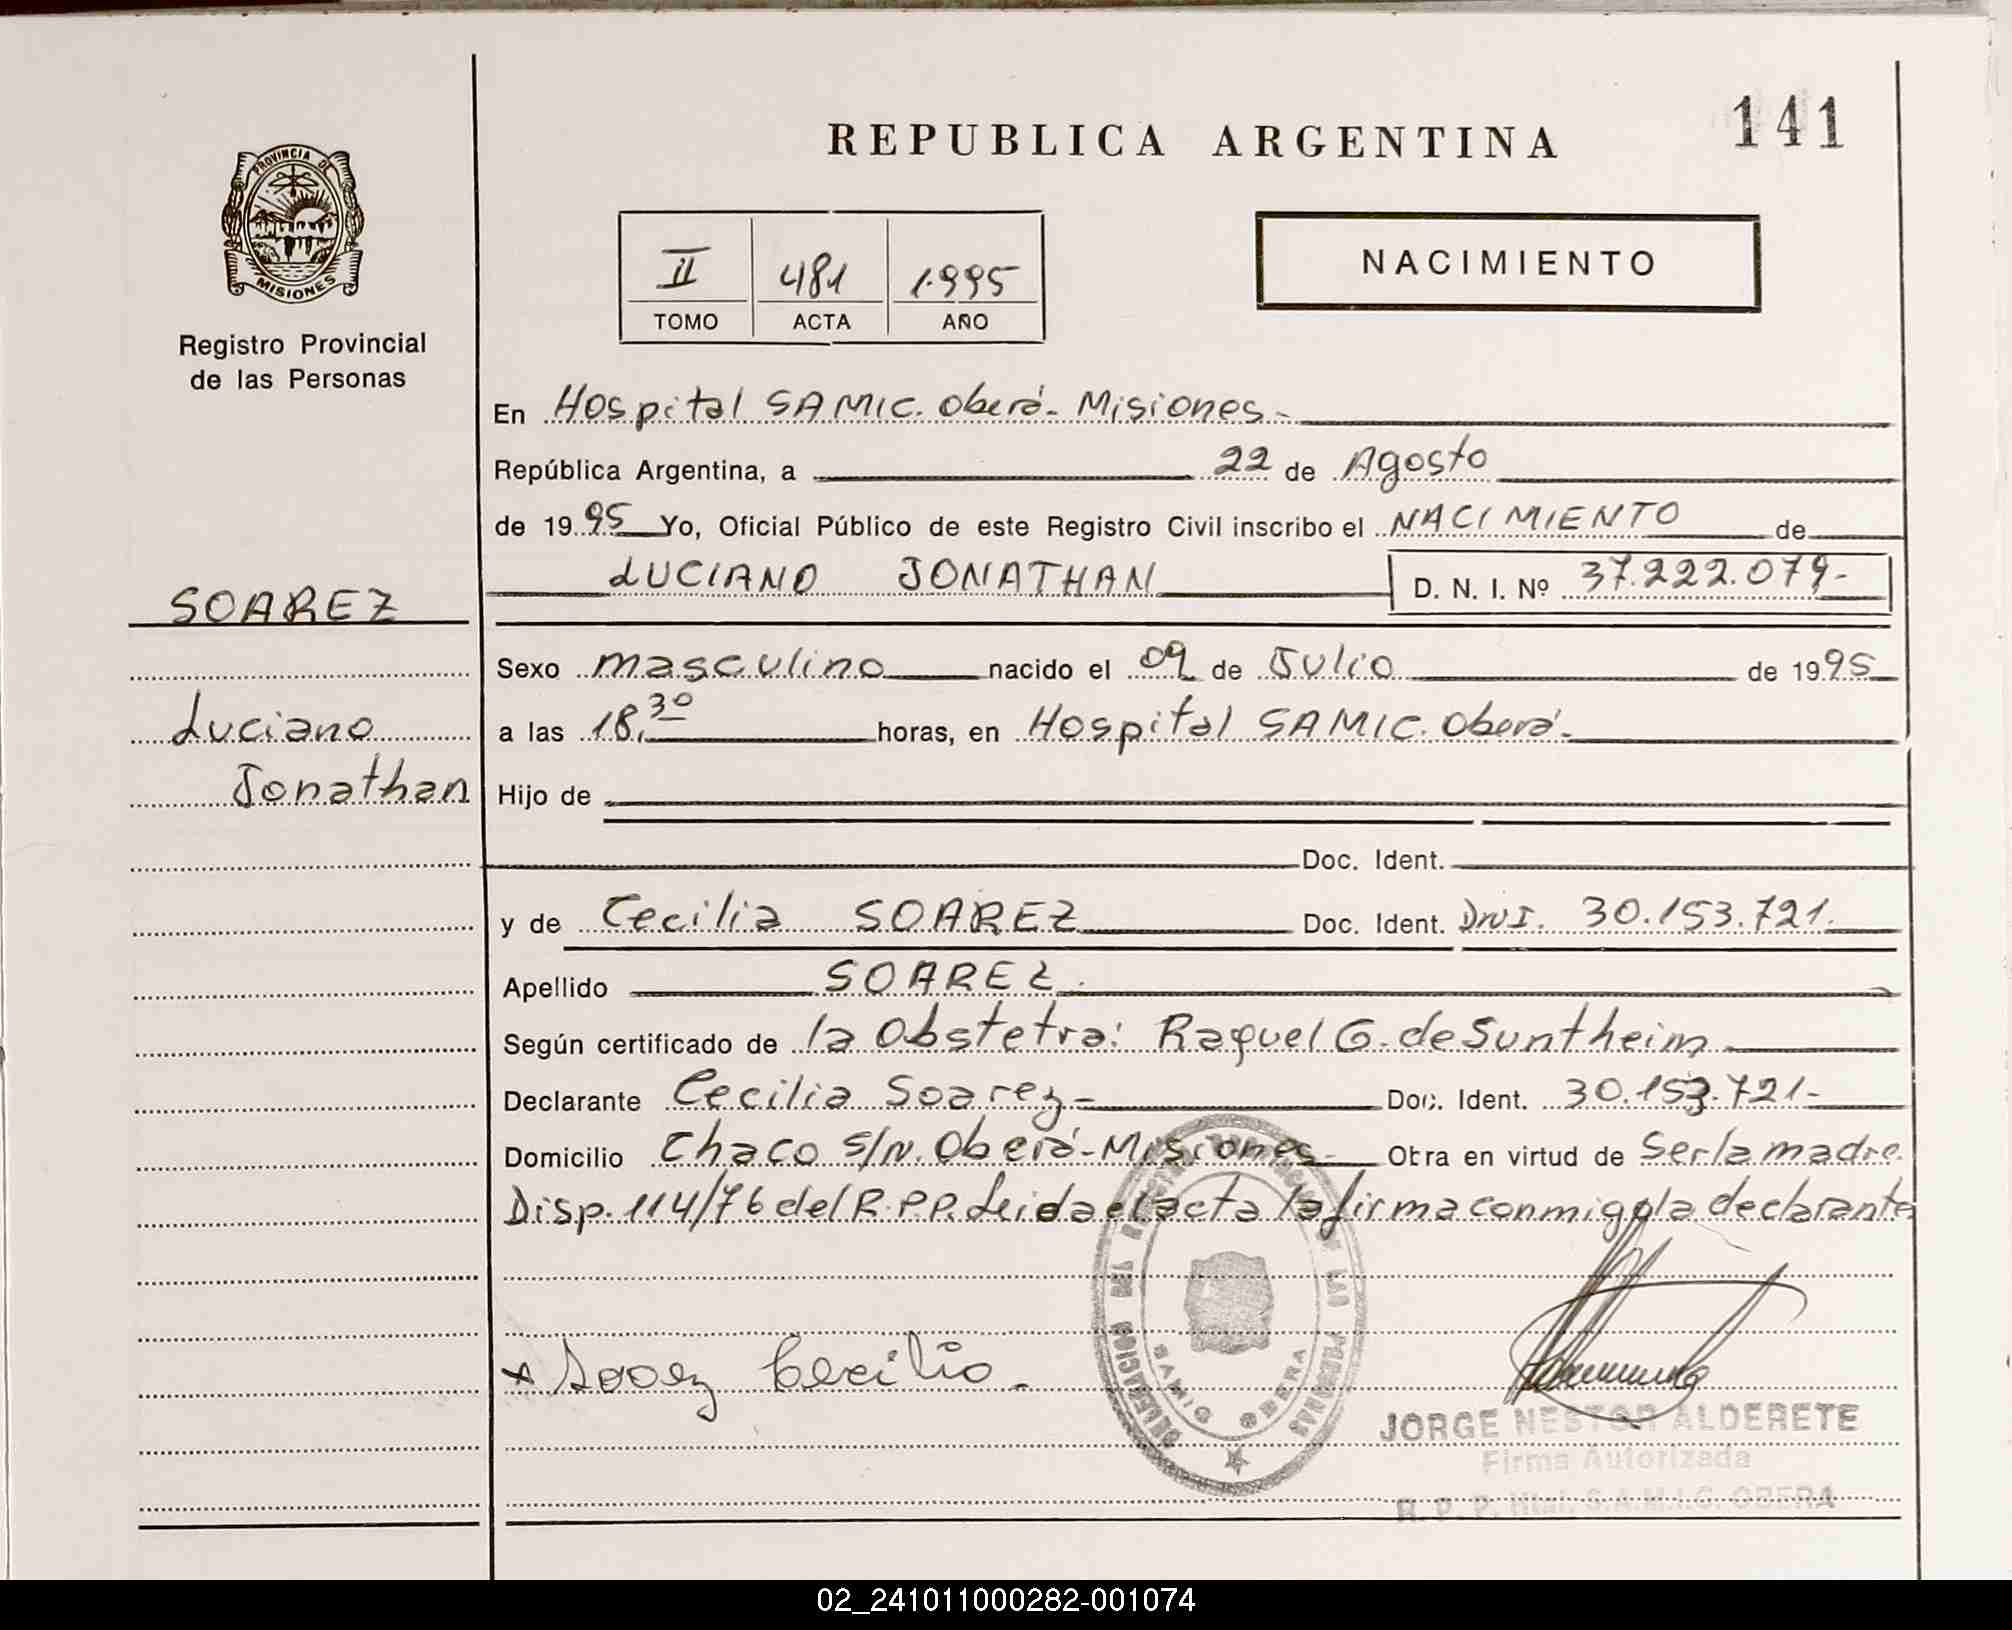 REPUBLICA ARGENTINA
141
PROVINCIA DE
MISIONES
Registro Provincial
de las Personas
II 481 1.995
TOMO ACTA AÑO
NACIMIENTO
En Hospital SAMIC. Oberá- Misiones.-
República Argentina, a 22 de Agosto
de 1995 Yo, Oficial Público de este Registro Civil inscribo el NACIMIENTO de
LUCIANO JONATHAN D. N. I. Nº 37.222.079-
SOAREZ
Luciano
Jonathan
Sexo masculino nacido el 09 de Julio de 1995
a las 18,30 horas, en Hospital SAMIC. Oberá-
Hijo de
Doc. Ident.
y de Cecilia SOAREZ Doc. Ident. DNI. 30.153.721.
Apellido SOAREZ.
Según certificado de la Obstetra: Raquel G. de Suntheim
Declarante Cecilia Soarez- Doc. Ident. 30.153.721-
Domicilio Chaco S/N. Oberá-Misiones- Obra en virtud de Ser la madre
Disp. 114/76 del R.P.P. Leida el acta la firma conmigo la declarante
DELEGACION DEL REGISTRO PROVINCIAL DE LAS PERSONAS
SAMIC OBERA
x Soarez Cecilia.
JORGE NESTOR ALDERETE
Firma Autorizada
R. P. P. Htal. S.A.M.I.C. OBERA
02_241011000282-001074